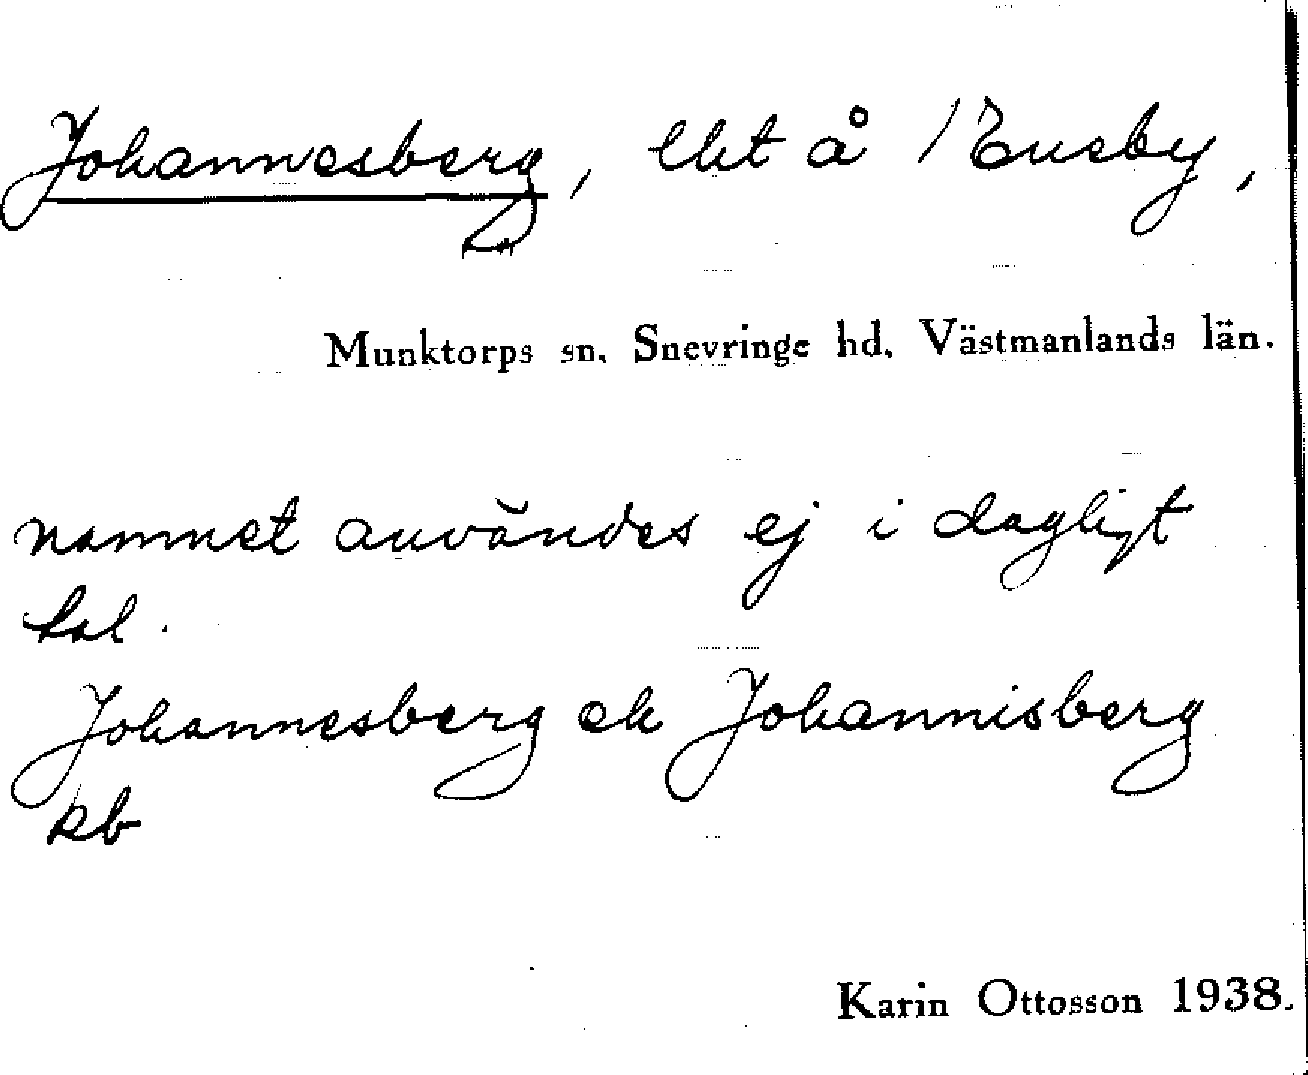 Johannesberg, lht å
Munktorps sn. Snevringe hd. Västmanlands län.
namnet användes ej i dagligt
tal.
Johannesberg ek Johannisberg
kb
Karin Ottosson 1938.